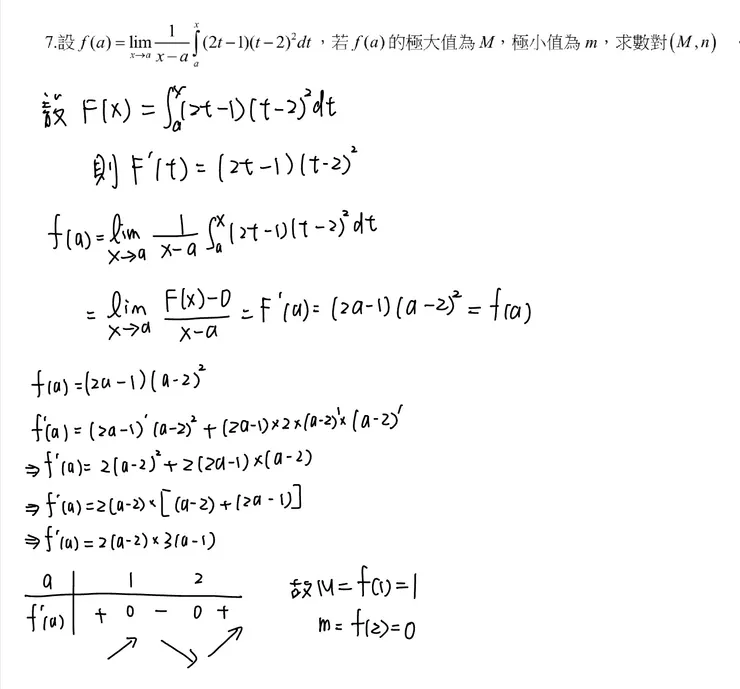 7.設 f(a) = lim_{x→a} 1/(x−a) ∫_a^x (2t−1)(t−2)²dt，若 f(a) 的極大值為 M，極小值為 m，求數對(M,n)
設 F(x) = ∫_a^x (2t−1)(t−2)²dt
則 F'(t) = (2t−1)(t−2)²
f(a) = lim_{x→a} 1/(x−a) ∫_a^x (2t−1)(t−2)²dt
= lim_{x→a} (F(x)−0)/(x−a) = F'(a) = (2a−1)(a−2)² = f(a)
f(a) = (2a−1)(a−2)²
f'(a) = (2a−1)'(a−2)² + (2a−1)×2×(a−2)¹×(a−2)'
⇒ f'(a) = 2(a−2)² + 2(2a−1)×(a−2)
⇒ f'(a) = 2(a−2)×[(a−2)+(2a−1)]
⇒ f'(a) = 2(a−2)×3(a−1)
a 1 2
f'(a) + 0 − 0 +
↗ ↘ ↗
故 M = f(1) = 1
m = f(2) = 0